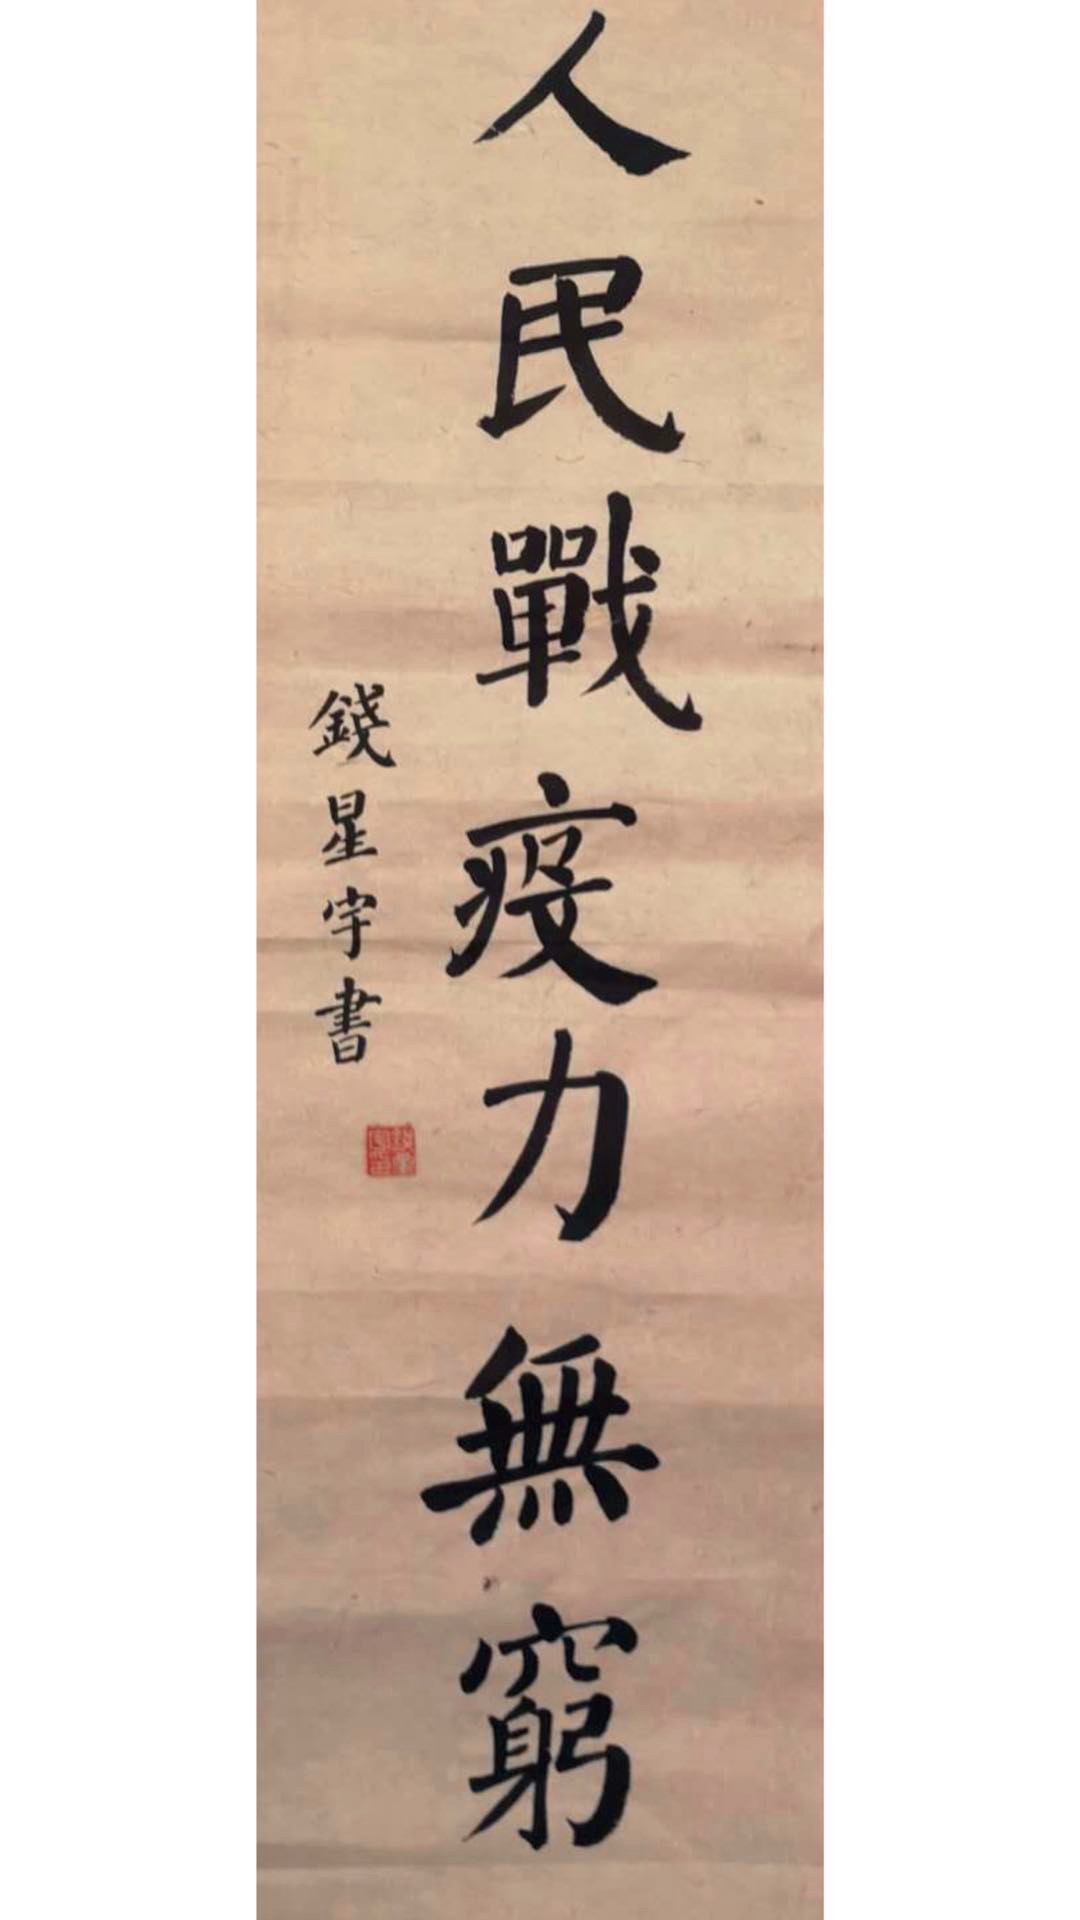 人民戰疫力無窮
錢星宇書